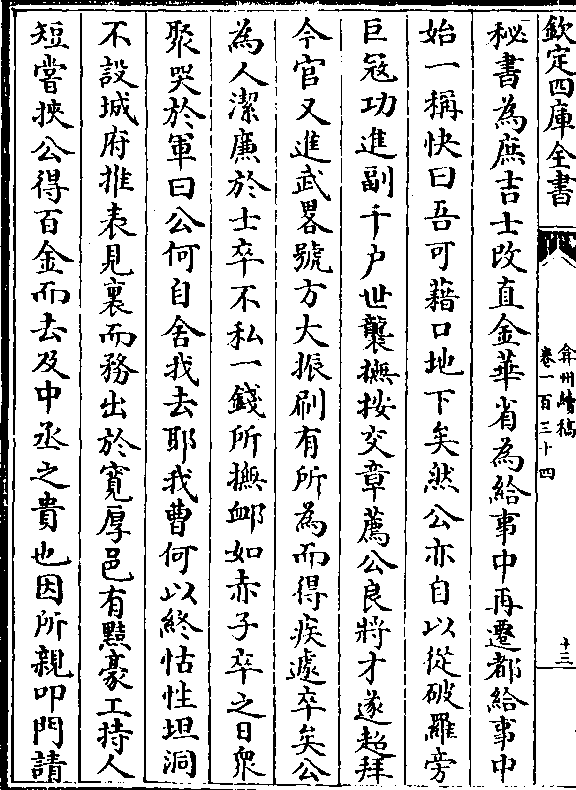 欽定四庫全書
弇州續稿
卷一百三十四
十三
秘書為庶吉士改直金華省為給事中再遷都給事中
始一稱快曰吾可藉口地下矣然公亦自以從破羅旁
巨冦功進副千户世襲撫按交章薦公良將才遂超拜
今官又進武畧號方大振刷有所為而得疾遽卒矣公
為人潔廉於士卒不私一錢所撫卹如赤子卒之日衆
聚哭於軍曰公何自舍我去耶我曹何以終怙性坦洞
不設城府推表見裏而務出於寛厚邑有黠豪工持人
短嘗挾公得百金而去及中丞之貴也因所親叩門請